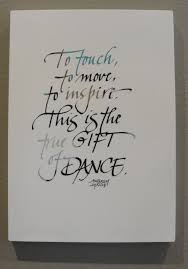 To touch,
to move,
to inspire.
This is the
true GIFT
of DANCE.